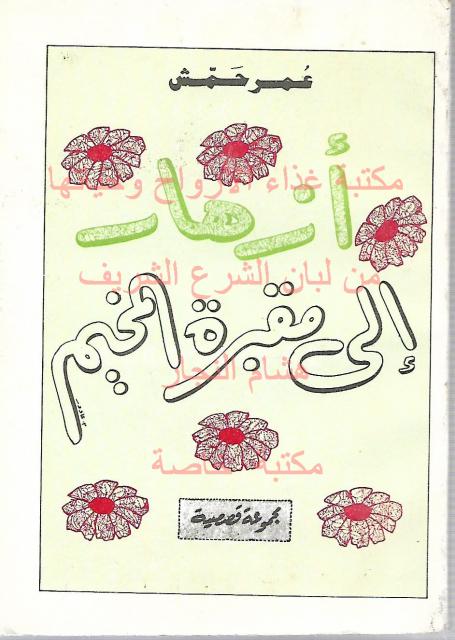 عُمر حَمّش
مكتبة غذاء الأرواح وطبها
أزهار
من لبان الشرع الشريف
إلى مقبرة المخيم
هشام النجار
مكتبة خاصة
مجموعة قصصية